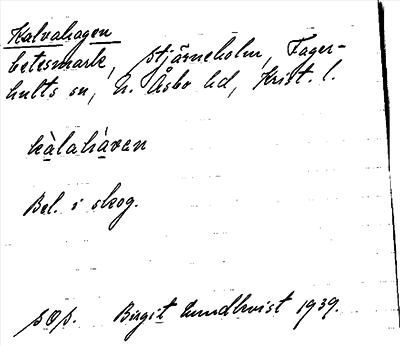 Kalvahagen
betesmark, Stjärneholm, Fager-
hults sn, N. Åsbo hd, Krist. l.
kàlahàven
Bel. i skog.
Birgit Lundkvist 1939.